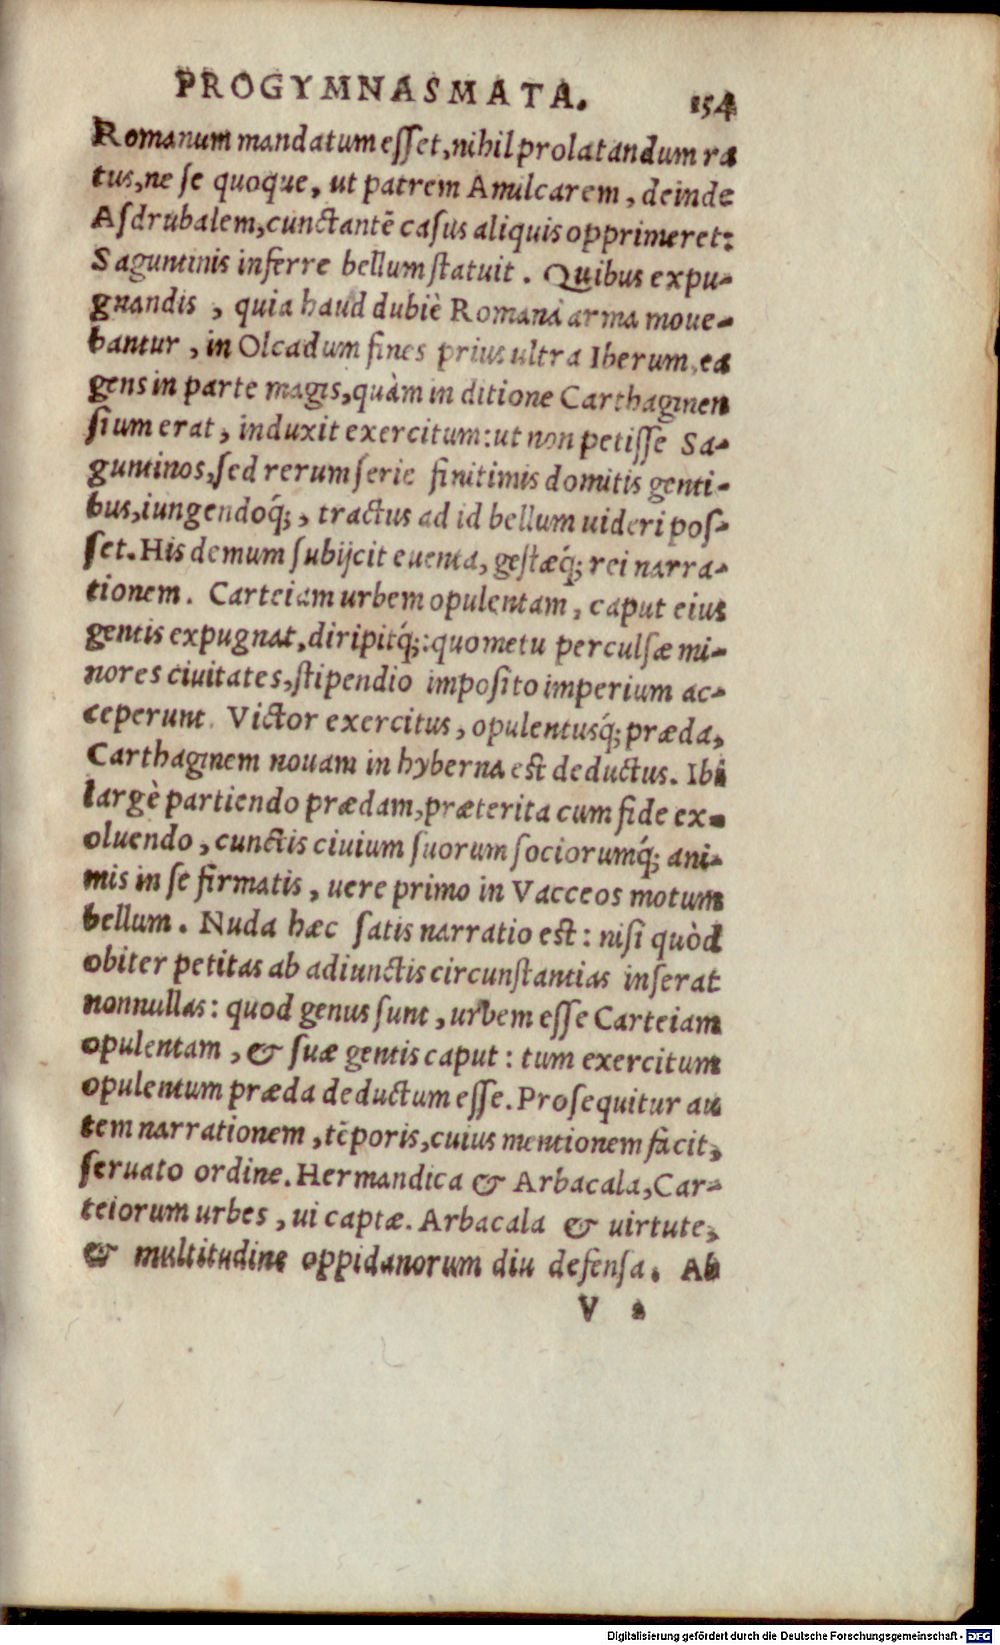 PROGYMNASMATA. 154
Romanum mandatum esſet, nihil prolatandum ra
tus, ne ſe quoque, ut patrem Amilcarem, deinde
Aſdrubalem, cunctantẽ caſus aliquis opprimeret:
Saguntinis inferre bellum ſtatuit. Quibus expu-
gnandis, quia haud dubiè Romana arma moue-
bantur, in Olcadum fines prius ultra Iberum, ea
gens in parte magis, quàm in ditione Carthaginen
ſium erat, induxit exercitum: ut non petiſſe Sa-
guntinos, ſed rerum ſerie finitimis domitis genti-
bus, iungendoq́;, tractus ad id bellum uideri poſ-
ſet. His demum ſubijcit euenta, geſtæq́; rei narra-
tionem. Carteiam urbem opulentam, caput eius
gentis expugnat, diripitq́;: quo metu perculſæ mi-
nores ciuitates, ſtipendio impoſito imperium ac-
ceperunt. Victor exercitus, opulentusq́; præda,
Carthaginem nouam in hyberna eſt deductus. Ibi
largè partiendo prædam, præterita cum fide ex-
oluendo, cunctis ciuium ſuorum ſociorumq́; ani-
mis in ſe firmatis, uere primo in Vacceos motum
bellum. Nuda hæc ſatis narratio eſt: niſi quòd
obiter petitas ab adiunctis circunſtantias inſerat
nonnullas: quod genus ſunt, urbem eſſe Carteiam
opulentam, & ſuæ gentis caput: tum exercitum
opulentum præda deductum eſſe. Proſequitur au
tem narrationem, tẽporis, cuius mentionem facit,
ſeruato ordine. Hermandica & Arbacala, Car-
teiorum urbes, ui captæ. Arbacala & uirtute,
& multitudine oppidanorum diu defenſa. Ab
V 2
Digitalisierung gefördert durch die Deutsche Forschungsgemeinschaft - DFG